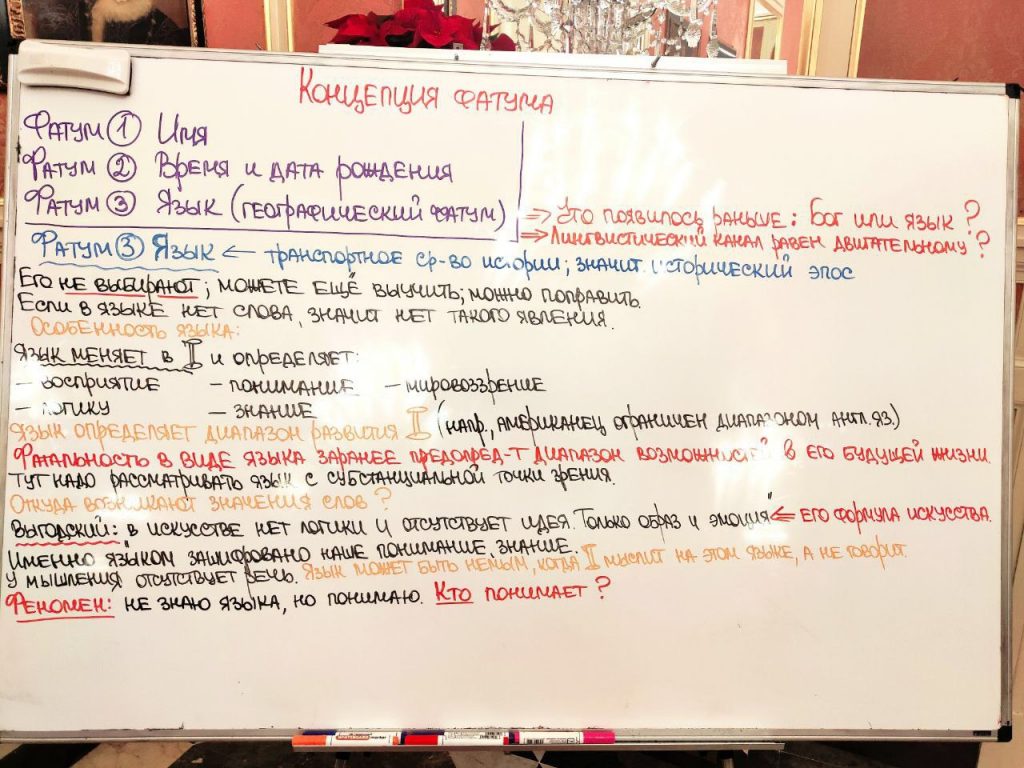 Концепция фатума
Фатум ① Имя
Фатум ② Время и дата рождения
Фатум ③ Язык (географический фатум)
⇒ Что появилось раньше: Бог или язык?
⇒ Лингвистический канал равен двигательному?
Фатум ③ Язык ← транспортное ср-во истории; значит исторический эпос
Его не выбирают; можете ещё выучить; можно поправить.
Если в языке нет слова, значит нет такого явления.
Особенность языка:
Язык меняет в и определяет:
– восприятие – понимание – мировоззрение
– логику – знание
Язык определяет диапазон развития (напр., американец ограничен диапазоном англ. яз.)
Фатальность в виде языка заранее предопред-т диапазон возможностей в его будущей жизни.
Тут надо рассматривать язык с субстанциальной точки зрения.
Откуда возникают значения слов?
Выготский: в искусстве нет логики и отсутствует идея. Только образ и эмоция" ⇐ его формула искусства.
Именно языком зашифровано наше понимание, знание.
У мышления отсутствует речь. Язык может быть немым, когда мыслит на этом языке, а не говорит.
Феномен: не знаю языка, но понимаю. Кто понимает?